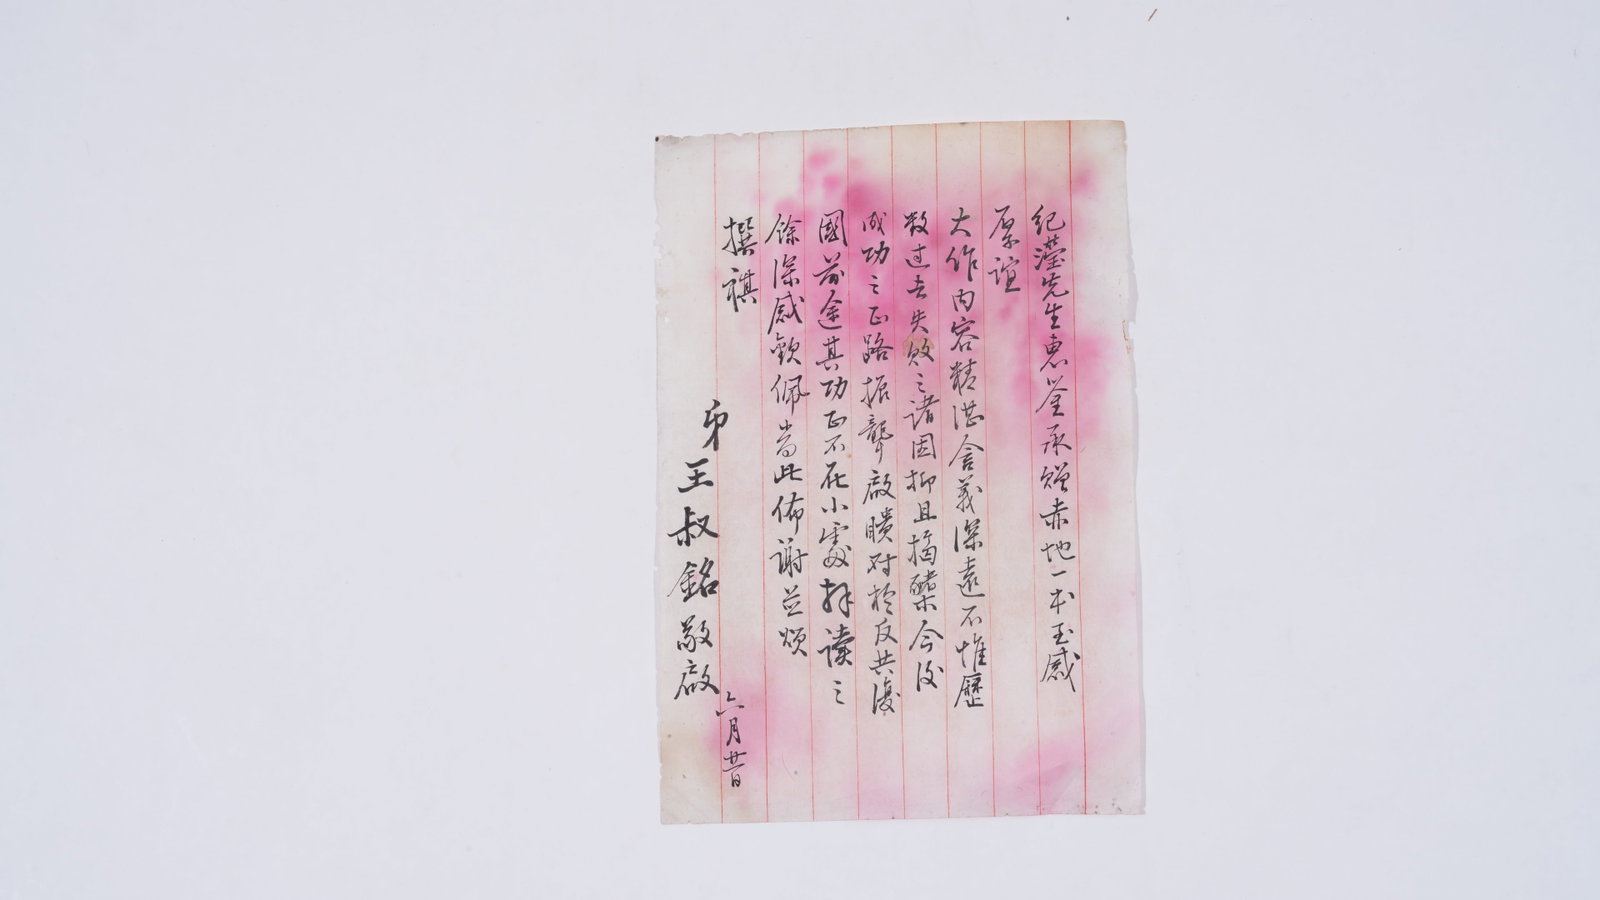 紀瀅先生惠鑒承贈赤地一本至感
厚誼
大作內容精湛含義深遠不惟歷
數過去失敗之諸因抑且揭櫫今後
成功之正路振聾啟瞶對於反共復
國前途其功正不在小處拜讀之
餘深感欽佩耑此佈謝並頌
撰祺
弟王叔銘敬啟
六月廿日